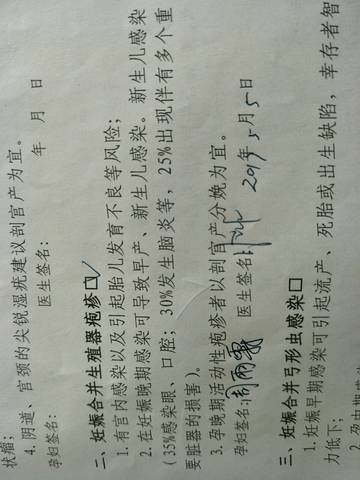 状瘤；
4. 阴道、宫颈的尖锐湿疣建议剖宫产为宜。
孕妇签名： 医生签名： 年 月 日
二、妊娠合并生殖器疱疹☑
1. 有宫内感染以及引起胎儿发育不良等风险；
2. 在妊娠晚期感染可导致早产、新生儿感染。新生儿感染
（35%感染眼、口腔；30%发生脑炎等，25%出现伴有多个重
要脏器的损害）。
3. 孕晚期活动性疱疹者以剖宫产分娩为宜。
孕妇签名： 医生签名： 2019年5月5日
三、妊娠合并弓形虫感染□
1. 妊娠早期感染可引起流产、死胎或出生缺陷，幸存者智
力低下；